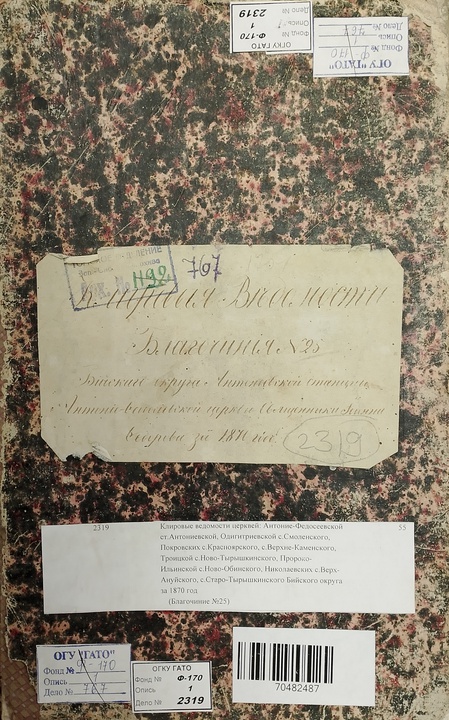 ОГКУ ГАТО
Фонд № Ф-170
Опись 1
Дело № 2319
ОГУ "ГАТО"
Фонд № Ф-170
Опись
Дело № 767
1192
767
Клировыя Ведомости
Благочинія №25
Бийскаго округа Антоньевской станицы
церкви Священника
за 1870 год.
2319
2319 Клировые ведомости церквей: Антоние-Федосеевской 55
ст.Антониевской, Одигитриевской с.Смоленского,
Покровских с.Красноярского, с.Верхне-Каменского,
Троицкой с.Ново-Тырышкинского, Пророко-
Ильинской с.Ново-Обинского, Николаевских с.Верх-
Ануйского, с.Старо-Тырышкинского Бийского округа
за 1870 год
(Благочиние №25)
ОГУ "ГАТО"
Фонд № Ф-170
Опись
Дело № 767
ОГКУ ГАТО
Фонд № Ф-170
Опись 1
Дело № 2319
70482487